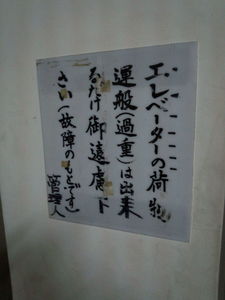 エレベーターの荷物
運般(過重)は出来
るだけ御遠慮下
さい(故障のもとです)
管理人